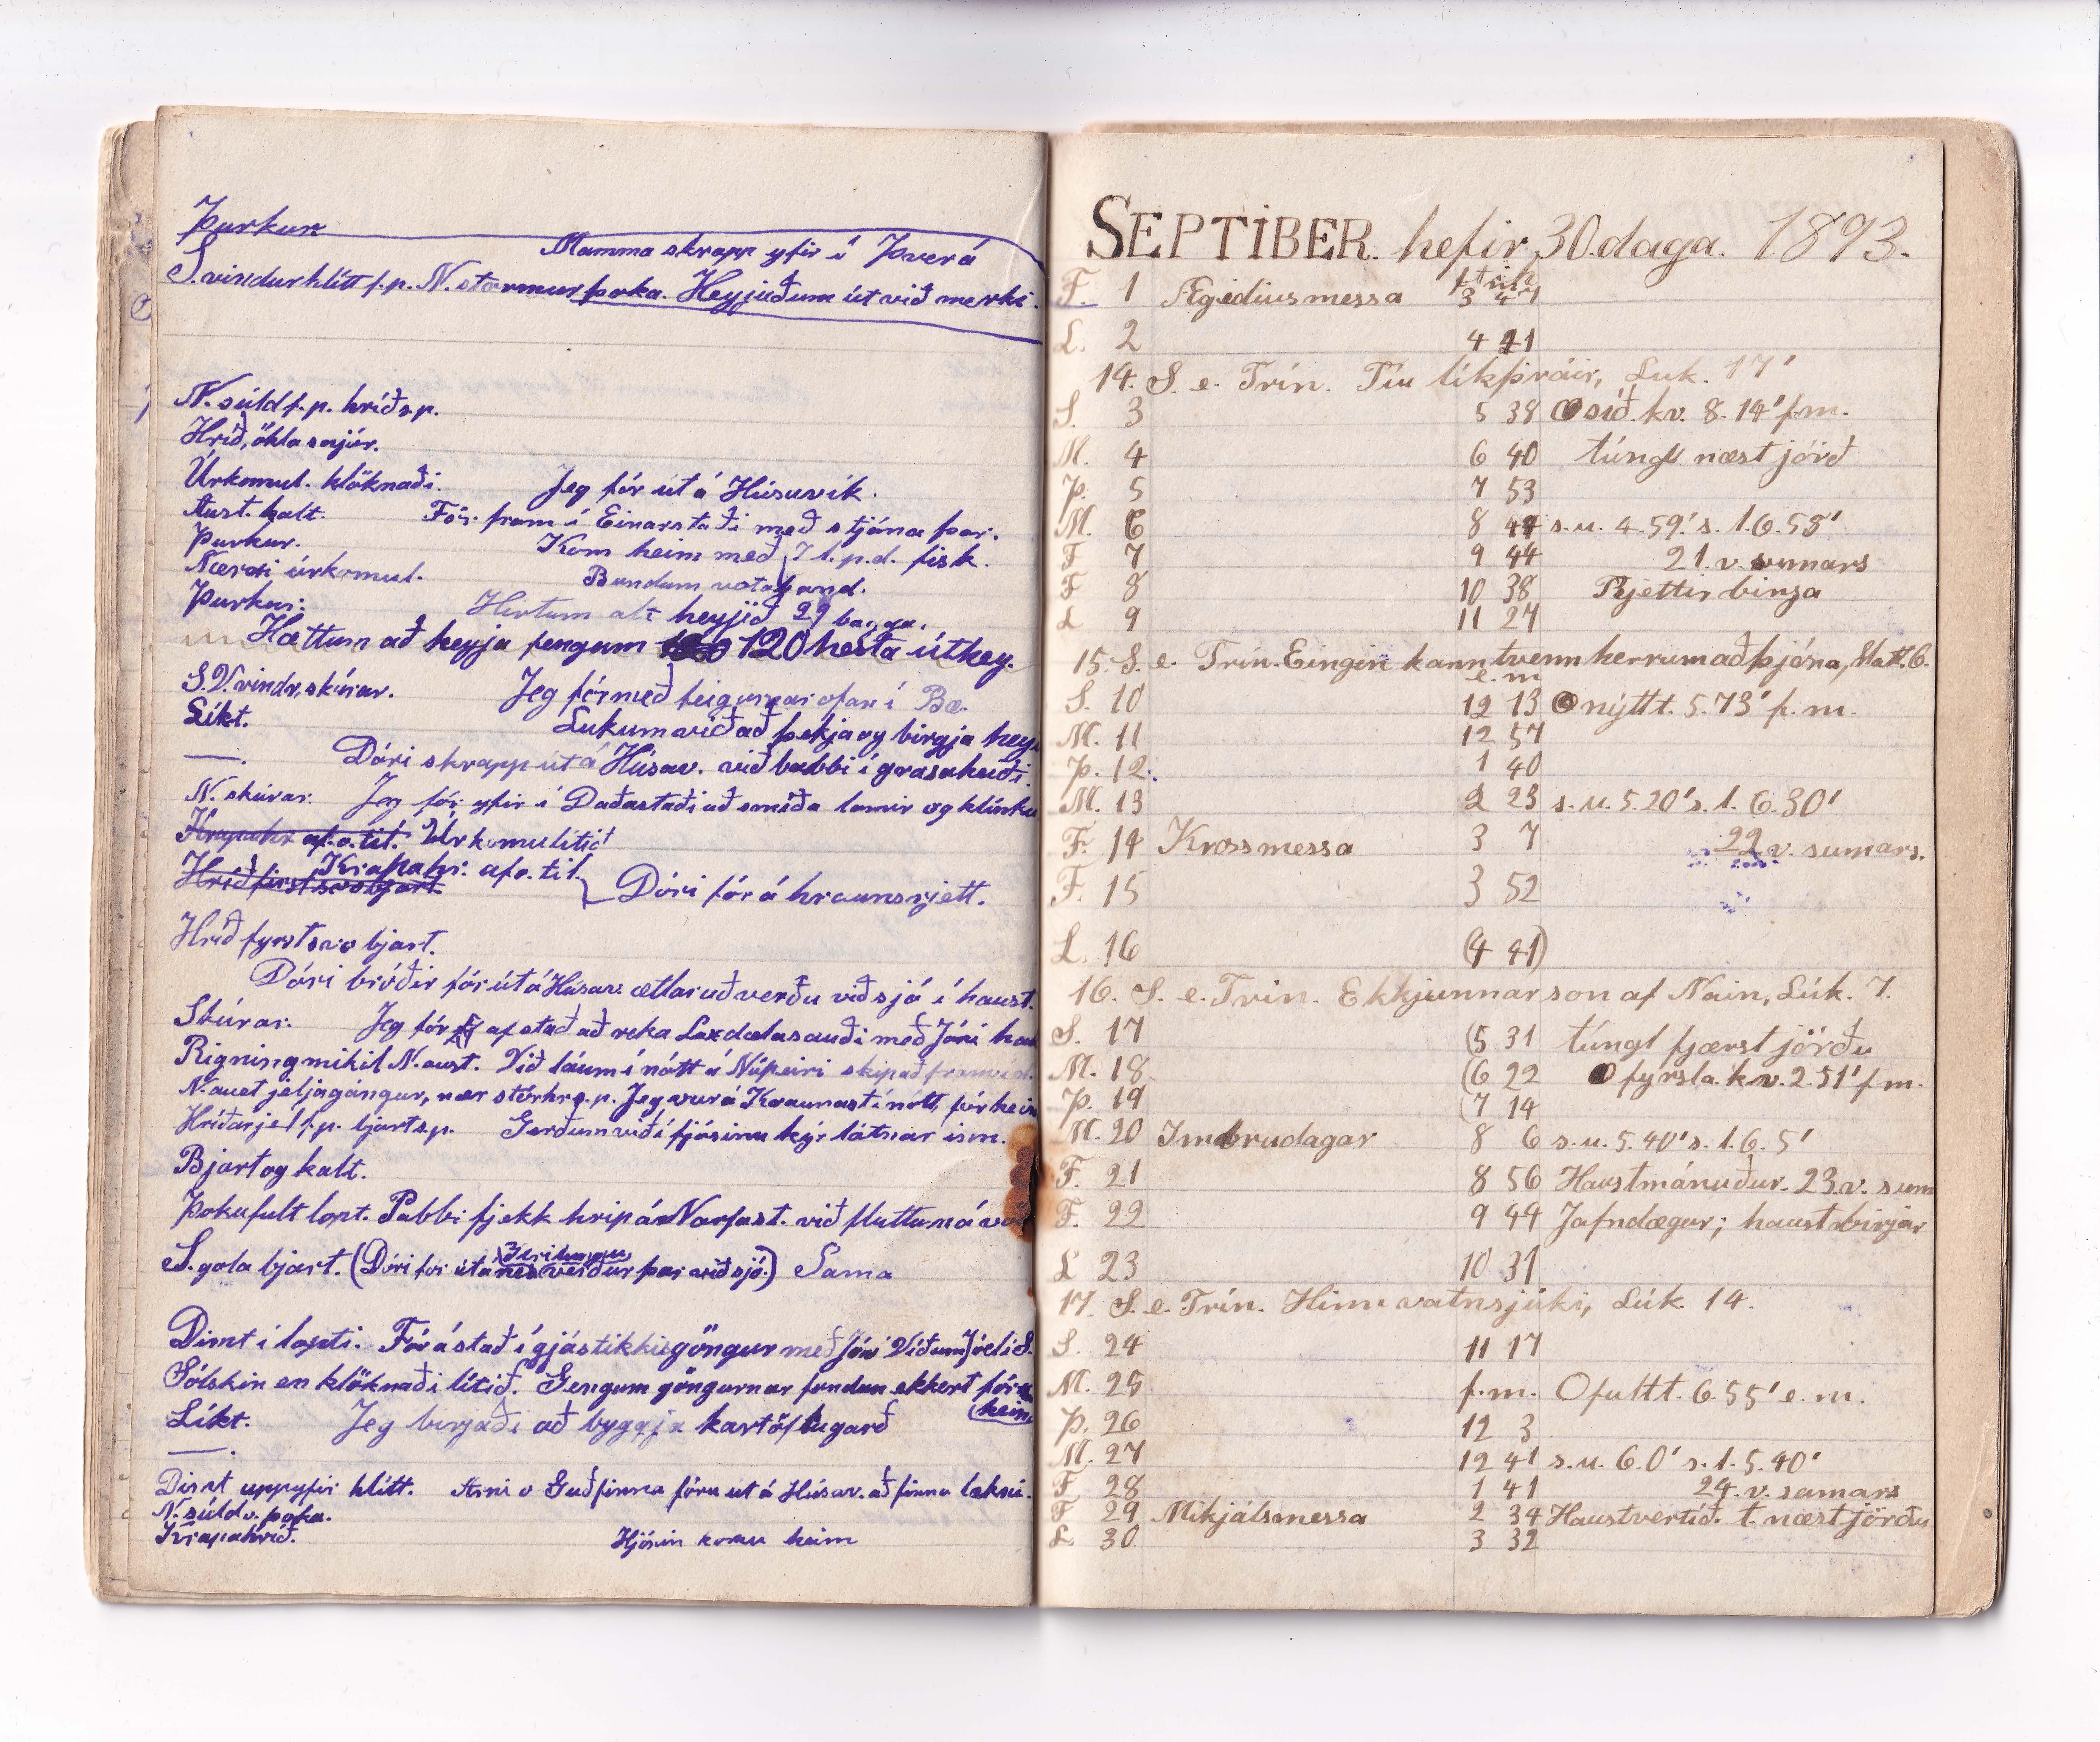 Þurkur
Mamma skrapp yfir í Þverá
S.vindur hlítt f.p. N. stormur þoka. Heyjuðum út við merki.
N. súld f.p. hríð s.p.
Hríð, ökla snjór.
Úrkomul. klöknaði. Jeg fór út á Húsavík.
Aust. kalt. Fór fram í Einarstaði með stjána þar.
Þurkur. Kom heim með 7 l.p.d. fisk.
Nærri úrkomul. Bundum votaband.
Þurkur. Hirtum alt heyjið 29 bagga.
Hættum að heyja fengum 120 hesta úthey.
S.V. vindr, skúrar. Jeg fór með ofan í Bæ.
Líkt. Lukum við að þekja og birgja hey
—. Dóri skrapp út á Húsav. við babbi í grasahuði.
N. skúrar. Jeg fór yfir í Daðastaði að smíða lamir og klínku
Krapahr af.o.til. Úrkomulítið
Hríð first svo bjart Krapahr: af o. til. Dóri fór á hraunsrjett.
Hríð fyrst svo bjart.
Dóri bróðir fór út á Húsav. ætlar að verða við sjó í haust.
Skúrar. Jeg fór af stað að reka Laxdælasauði með Jóni
Rigning mikil N.aust. Við láum í nótt á Núpeiri
N.aust jeljagángur, nær stórhr s.p. Jeg var á Kraunast í nótt, fór heim
Hríðarjel f.p. bjart s.p. Gerðum við í fjósinu kýr látnar inn.
Bjart og kalt.
Þokufult lopt. Pabbi fjekk hrip á Narfast. við fluttum á
S.gola bjart. (Dóri for út á nes verður þar við sjó.) Sama
Dimt í lopti. Fór á stað í gjástikkisgöngur með Jóni Víðum Jóeli S.
Sólskin en klöknaði lítið. Gengum göngurnar fundum ekkert fór
heim
Líkt. Jeg birjaði að byggja kartöflugarð
—.
Dimt uppyfir hlítt. Arni o Guðfinna fóru út á Húsav. að finna lækni.
N. súld o. þoka.
Krapahríð. Hjónin komu heim
SEPTÍBER. hefir 30. daga. 1893.
F. 1 Ægidiusmessa 3 47
L. 2 4 41
14. S. e. Trín. Tíu líkþráir, Luk. 17'
S. 3 5 38 síð. kv. 8. 14' f.m.
M. 4 6 40 túngl næst jörð
Þ. 5 7 53
M. 6 8 49 s.u. 4.59'. s.l. 6.58'
F 7 9 44 21. v. sumars
F 8 10 38 Rjettir birja
L 9 11 27
15. S. e. Trín. Eingin kann tvenn herrum að þjóna, Matt. 6.
e. m
S. 10 12 13 nýtt t. 5. 73' f. m.
M. 11 12 57
Þ. 12. 1 40
M. 13 2 23 s.u. 5.20' s.l. 6.30'
F. 14 Krossmessa 3 7 22 v. sumars.
F. 15 3 52
L. 16 (4 41)
16. S. e. Trín. Ekkjunnar son af Nain, Lúk. 7.
S. 17 (5 31 túngl fjærst jörðu
M. 18 (6 22 fyrsta. kv. 2.51' f.m.
Þ. 19 (7 14
M. 20 Imbrudagar 8 6 s.u. 5.40' s.l. 6. 5'
F. 21 8 56 Haustmánuður. 23. v. sum
F. 22 9 44 Jafndægur; haust birjar
L 23 10 31
17. S. e. Trín. Hinn vatnsjúki, Lúk. 14.
S. 24 11 17
M. 25 f.m. O fullt t. 6. 55' e. m.
Þ. 26 12 3
M. 27 12 41 s.u. 6.0' s.l. 5.40'
F 28 1 41 24. v. sumars
F 29 Mikjálsmessa 2 34 Haustvertíð. t. næst jörðu
L 30 3 32